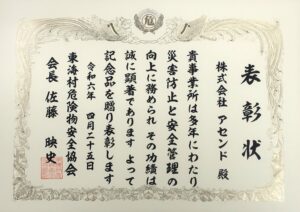 危
表彰状
株式会社 アセンド 殿
貴事業所は多年にわたり
災害防止と安全管理の
向上に務められ その功績は
誠に顕著であります よって
記念品を贈り表彰します
令和六年 四月二十五日
東海村危険物安全協会
会長 佐藤 映史